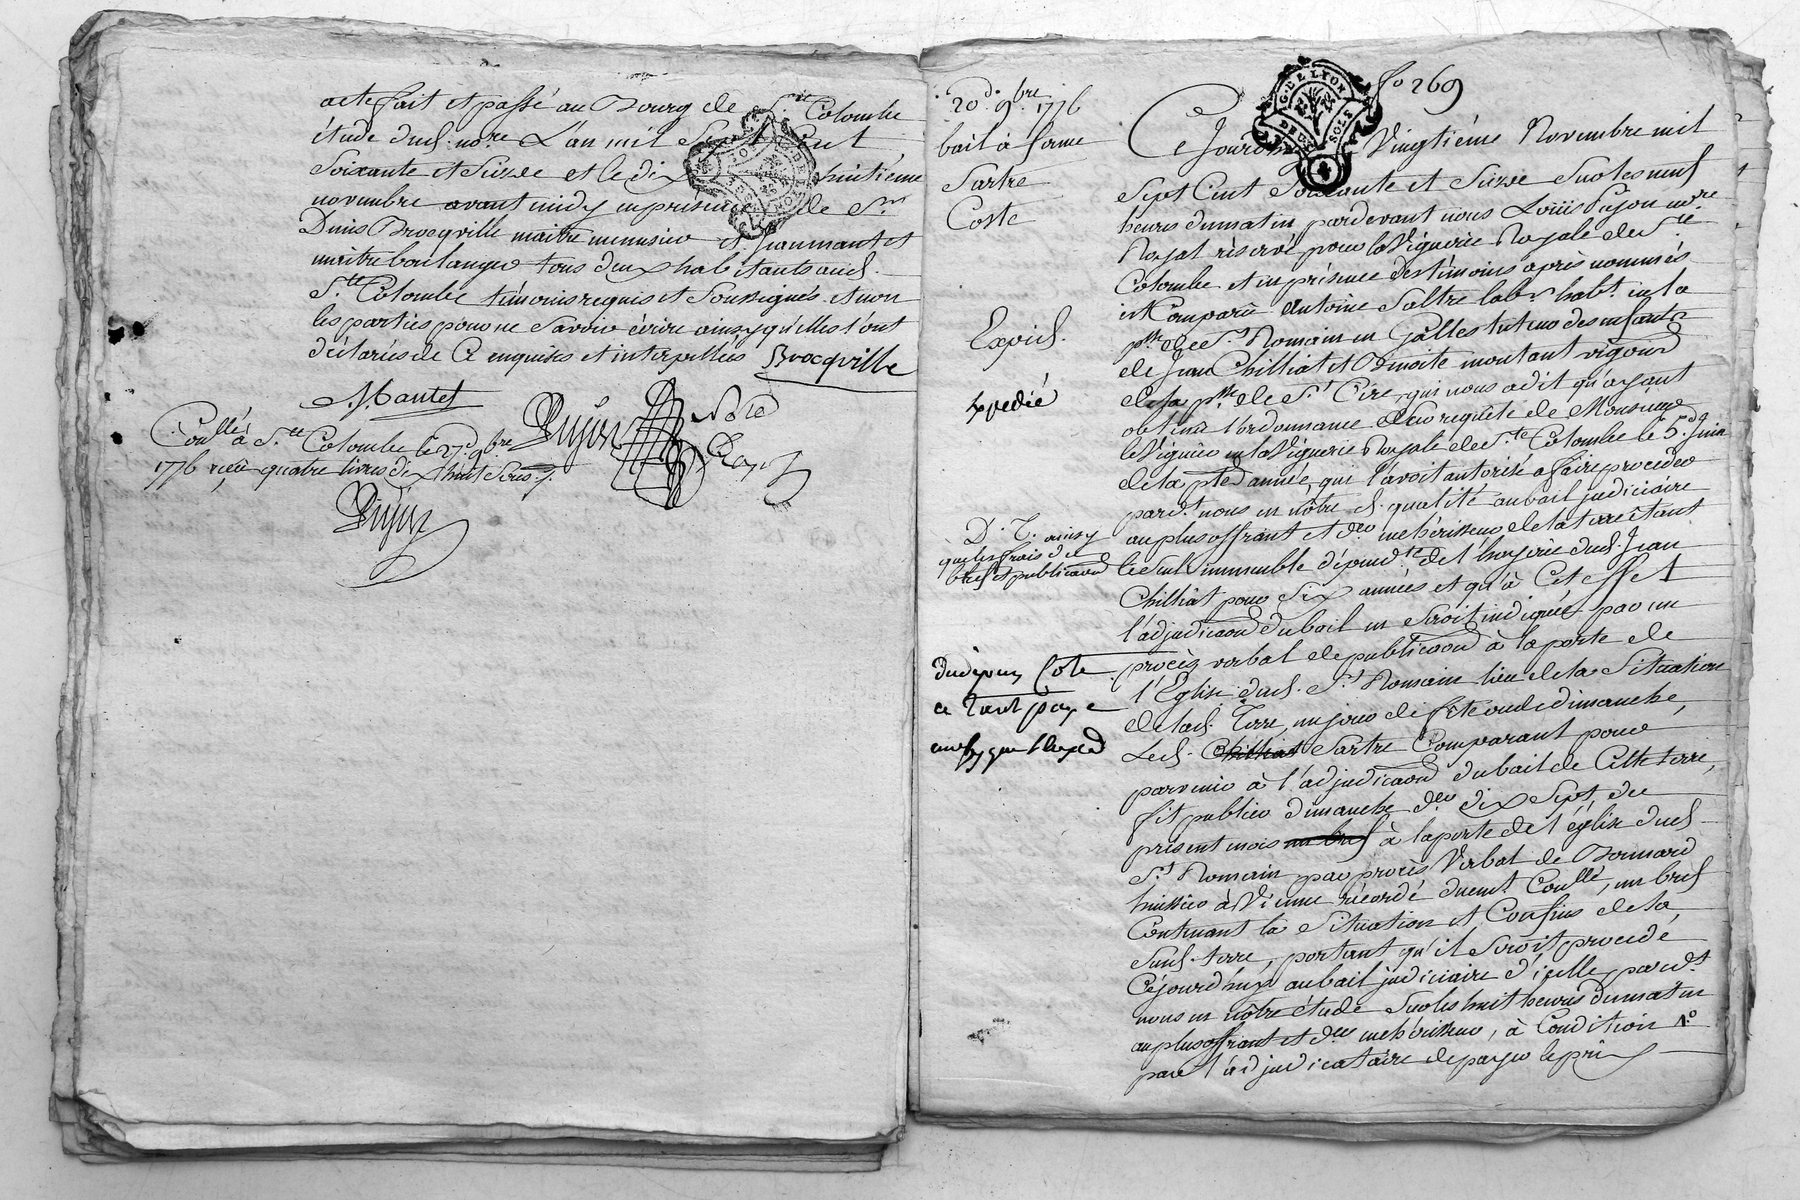 acte fait et passé au Bourg de Ste Colombe
étude dud. nore L'an mil Sept Cent
Soixante et Sieze et le dix huitieme
novembre avant midy en présence de Sr.
Denis Brocqville maitre menusier et Jean mantet
maitre boulanger tous deux habitants aud.
Ste Colombe témoins requis et Soussignés et non
les parties pour ne Savoir écrire ainsy qu'elles l'ont
déclarés de Ce enquises et interpellées Brocqville
J. Mantet
Pujon Nore Royal
Conllé à Ste Colombe le 27d. 9bre
1776 reçu quatre livres dix huit Sous
Pujon
fo 269
G. DE LYON
DEUX SOLS
20d. 9bre 1776
bail à ferme
Sartre
Coste
Expéd.
Expedié
D. T. ainsy
que les frais de
bref et publicaon
Ce Jourd'huy Vingtiéme Novembre mil
Sept Cent Soixante et Sieze Sur les neuf
heures du matin pardevant nous Louis Pujon nore
Royal réservé pour la Viguerie Royale de Ste
Colombe et en présence des témoins après nommés
est Comparu Antoine Sastre labr habt. en la
psse de St. Romain en Galles tuteur des enfants
de Jean Chilliat et Benoite montant vigour
de la psse de St Cire, qui nous a dit qu'ayant
obtenu l'ordonnance Sur requete de Monsieur
le Viguier en la Viguerie Royale de Ste Colombe le 5d. Juin
de la pte année, qui l'avoit autorisé a faire proceder
pardt. nous en nôtre d. qualité au bail judiciaire
au plus offrant et der encherisseur de la terre êtant
le Seul immeuble dépendt. de l'hoyerie dud. Jean
Chilliat pour Six années et qu'à Cet effet
l'adjudicaon du bail en Seroit indiquée par un
procès verbal de publicaon à la porte de
l'Eglise dud. St Romain lieu de la Situation
de lad. Terre, un jour de fête ou de dimanche,
Led. Chilliat Sartre Comparant pour
parvenir à l'adjudicaon du bail de Cette terre,
fit publier dimanche der dix Sept du
présent mois un bref à la porte de l'église dud.
St Romain par procès Verbal de Bonnard
huissier à Vienne récordé duemt. Conllé, un bref
Contenant la Situation et Confins de la
Susd. terre, portant qu'il Seroit procedé
Cejourd'huy au bail judiciaire d'icelle, pardt.
nous en nôtre étude Sur les huit heures du matin
au plus offrant et der encherisseur, à Condition 1o
par l'adjudicataire de payer le prix